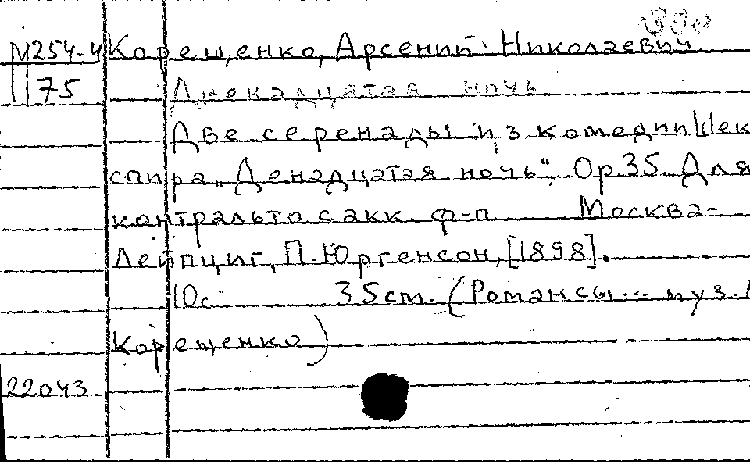 М254-4 Корещенко, Арсений Николаевич
75 Двенадцатая ночь
Две серенады из комедии Шек
спира „Двенадцатая ночь". Op.35. Для
контральто с акк. ф-п Москва-
Лейпциг, П. Юргенсон, [1898].
10с 35cm. (Романсы... муз.
Корещенко)
22043